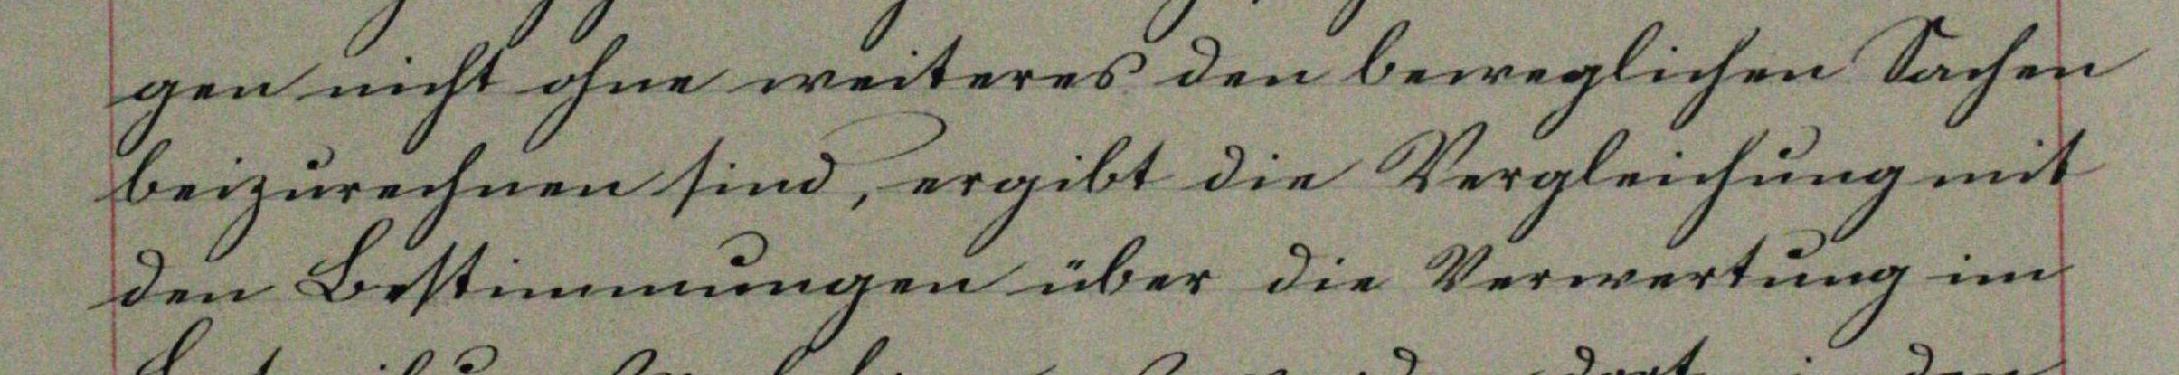 gen nicht ohne weiteres den beweglichen Sachen
beizurechnen sind, ergibt die Vergleichung mit
den Bestimmungen über die Verwertung im